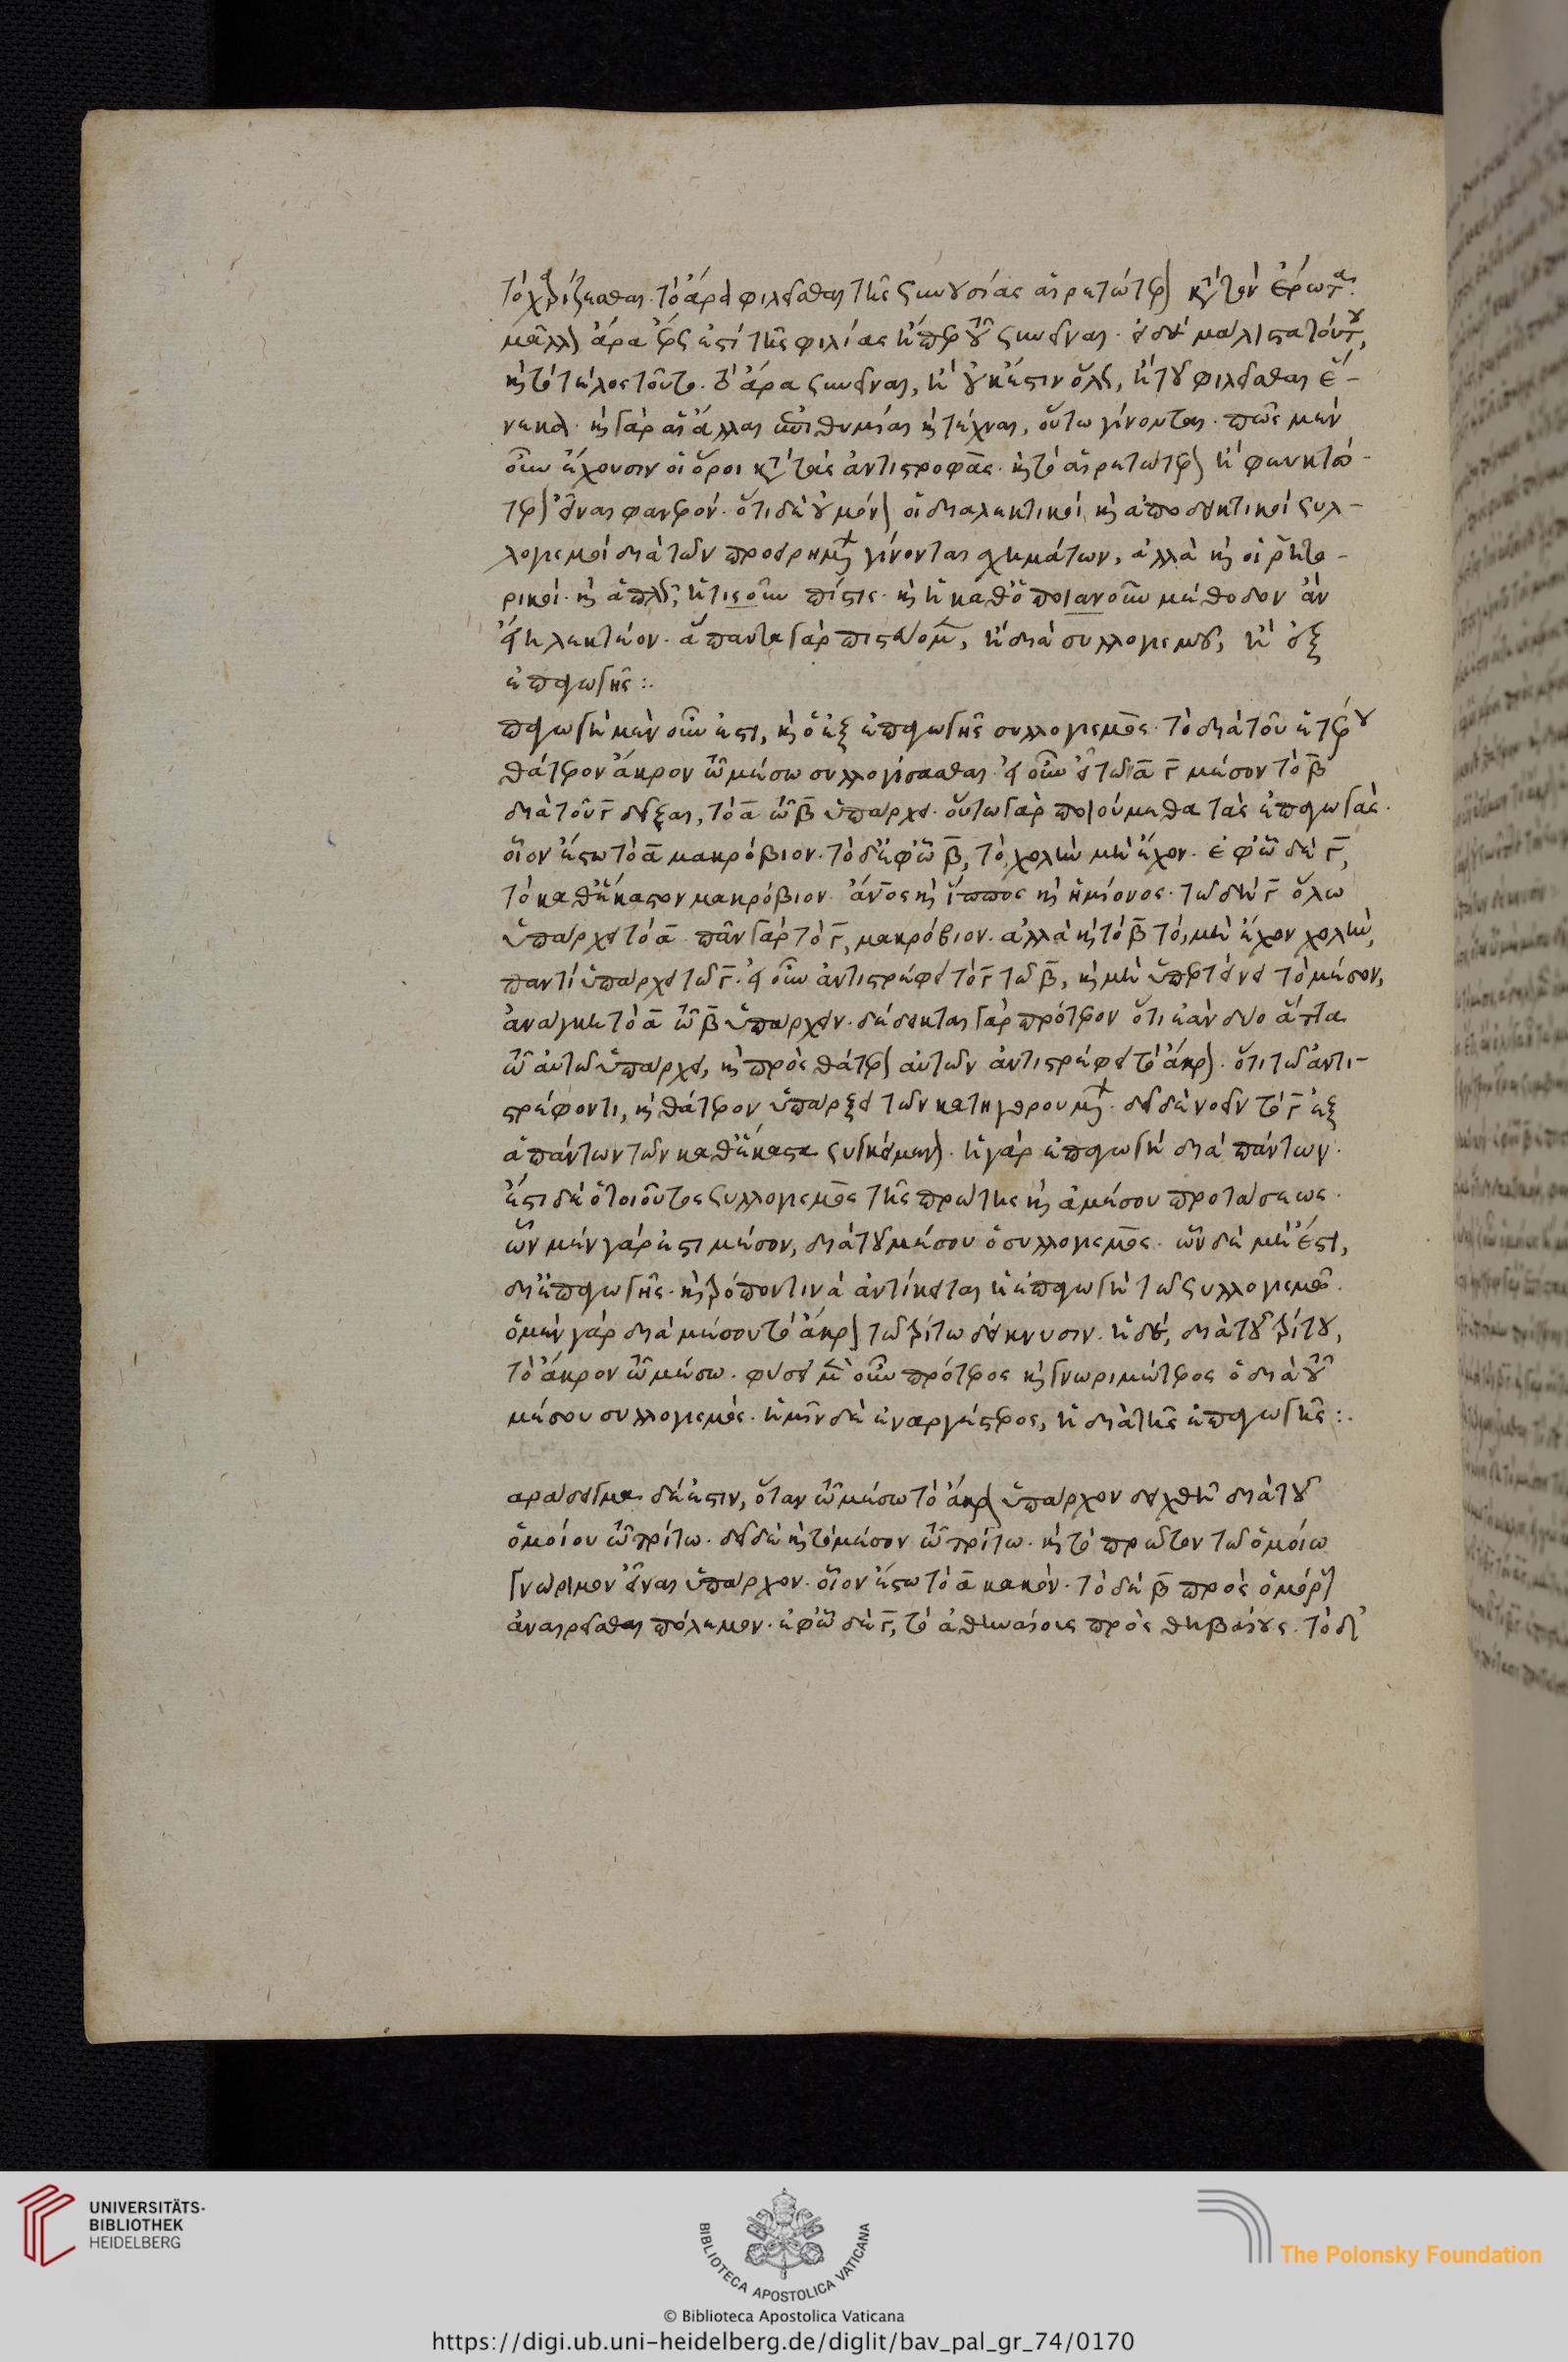 τὸ χαρίζεσθαι. τὸ ἄρα φιλεῖσθαι τῆς συνουσίας αἱρετώτερον κατὰ τὸν ἔρωτα.
μᾶλλον ἄρα ἔρως ἐστὶ τῆς φιλίας ἤπερ τοῦ συνεῖναι. εἰ δὲ μάλιστα τούτου,
καὶ τὸ τέλος τοῦτο. τὸ ἄρα συνεῖναι, ἢ οὐκ ἔστιν ὅλως, ἢ τοῦ φιλεῖσθαι ἕ-
νεκα. καὶ γὰρ αἱ ἄλλαι ἐπιθυμίαι καὶ τέχναι, οὕτω γίνονται. πῶς μὲν
οὖν ἔχουσιν οἱ ὅροι κατὰ τὰς ἀντιστροφὰς. καὶ τὸ αἱρετώτερον ἢ φευκτό-
τερον εἶναι φανερόν. ὅτι δὲ οὐ μόνον οἱ διαλεκτικοὶ καὶ ἀποδεικτικοὶ συλ-
λογισμοὶ διὰ τῶν προειρημένων γίνονται σχημάτων, ἀλλὰ καὶ οἱ ῥητο-
ρικοὶ. καὶ ἁπλῶς, ἥτις οὖν πίστις. καὶ ἡ καθ' ὁποιανοῦν μέθοδον ἂν
εἴη λεκτέον. ἅπαντα γὰρ πιστεύομεν, ἢ διὰ συλλογισμοῦ, ἢ ἐξ
ἐπαγωγῆς :.
παγωγὴ μὲν οὖν ἐστι, καὶ ὁ ἐξ ἐπαγωγῆς συλλογισμὸς. τὸ διὰ τοῦ ἑτέρου
θάτερον ἄκρον τῷ μέσω συλλογίσασθαι. εἰ οὖν τῶν α̅ γ̅ μέσον τὸ β̅
διὰ τοῦ γ̅ δεῖξαι, τὸ α̅ τῷ β̅ ὑπάρχει. οὕτω γὰρ ποιούμεθα τὰς ἐπαγωγάς.
οἷον ἔστω τὸ α̅ μακρόβιον. τὸ δ' ἐφ' ᾧ β̅, τὸ χολὴν μὴ ἔχον. ἐφ' ᾧ δὲ γ̅,
τὸ καθ' ἕκαστον μακρόβιον. ἄνος καὶ ἵππος καὶ ἡμίονος. τῶ δὴ γ̅ ὅλω
ὑπάρχει τὸ α̅. πᾶν γὰρ τὸ γ̅, μακρόβιον. ἀλλὰ καὶ τὸ β̅ τὸ, μὴ ἔχον χολὴν,
παντὶ ὑπάρχει τῶ γ̅. εἰ οὖν ἀντιστρέφει τὸ γ̅ τῶ β̅, καὶ μὴ ὑπερτείνει τὸ μέσον,
ἀνάγκη τὸ α̅ τῷ β̅ ὑπάρχειν. δέδεικται γὰρ πρότερον ὅτι ἐὰν δύο ἄττα
τῷ αὐτῶ ὑπάρχει, καὶ πρὸς θάτερον αὐτῶν ἀντιστρέφει τὸ ἄκρον. ὅτι τῶ ἀντι-
στρέφοντι, καὶ θάτερον ὑπάρξει τῶν κατηγορουμένων. δεῖ δὲ νοεῖν τὸ γ̅ ἐξ
ἁπάντων τῶν καθ' ἕκαστα συγκείμενον. ἡ γὰρ ἐπαγωγὴ διὰ πάντων.
ἔστι δὲ ὁ τοιοῦτος συλλογισμὸς τῆς πρώτης καὶ ἀμέσου προτάσεως.
ὧν μὲν γάρ ἐστι μέσον, διὰ τοῦ μέσου ὁ συλλογισμὸς. ὧν δὲ μὴ ἔστι,
δι' ἐπαγωγῆς. καὶ τρόπον τινὰ ἀντίκειται ἡ ἐπαγωγὴ τῶ συλλογισμῷ.
ὁ μὲν γὰρ διὰ μέσου τὸ ἄκρον τῶ τρίτω δείκνυσιν. ἡ δὲ, διὰ τοῦ τρίτου,
τὸ ἄκρον τῷ μέσω. φύσει μὲν οὖν πρότερος καὶ γνωριμώτερος ὁ διὰ τοῦ
μέσου συλλογισμός. ἡμῖν δὲ ἐναργέστερος, ἢ διὰ τῆς ἐπαγωγῆς :.
αράδειγμα δέ ἐστιν, ὅταν τῷ μέσω τὸ ἄκρον ὑπάρχον δειχθῆ διὰ τοῦ
ὁμοίου τῷ τρίτω. δεῖ δὲ καὶ τὸ μέσον τῷ τρίτω. καὶ τὸ πρῶτον τῶ ὁμοίω
γνώριμον εἶναι ὑπάρχον. οἷον ἔστω τὸ α̅ κακόν. τὸ δὲ β̅ πρὸς ὁμόρους
ἀναιρεῖσθαι πόλεμον. ἐφ' ᾧ δὲ γ̅, τὸ ἀθηναίους πρὸς θηβαίους. τὸ δ'
UNIVERSITÄTS-
BIBLIOTHEK
HEIDELBERG
BIBLIOTECA APOSTOLICA VATICANA
The Polonsky Foundation
© Biblioteca Apostolica Vaticana
https://digi.ub.uni-heidelberg.de/diglit/bav_pal_gr_74/0170